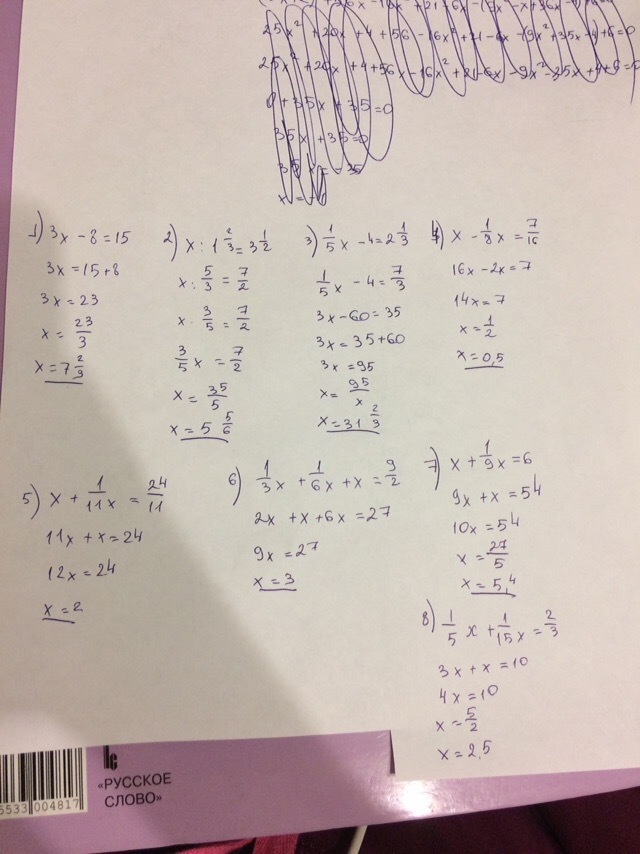 25x² + 20x + 4 + 56 - 16x² + 21 - 6x - (9x² + 35x - 4) + 6 = 0
25x² + 20x + 4 + 56x - 16x² + 21 - 6x - 9x² - 35x + 4 + 6 = 0
0 + 35x + 35 = 0
35x + 35 = 0
35x = -35
1) 3x - 8 = 15
3x = 15 + 8
3x = 23
x = 23/3
x = 7 2/3
2) x : 1 2/3 = 3 1/2
x : 5/3 = 7/2
x · 3/5 = 7/2
3/5 x = 7/2
x = 35/5
x = 5 5/6
3) 1/5 x - 4 = 2 1/3
1/5 x - 4 = 7/3
3x - 60 = 35
3x = 35 + 60
3x = 95
x = 95/x
x = 31 2/3
4) x - 1/8 x = 7/16
16x - 2x = 7
14x = 7
x = 1/2
x = 0,5
5) x + 1/11x = 24/11
11x + x = 24
12x = 24
x = 2
6) 1/3x + 1/6x + x = 9/2
2x + x + 6x = 27
9x = 27
x = 3
7) x + 1/9x = 6
9x + x = 54
10x = 54
x = 27/5
x = 5,4
8) 1/5 x + 1/15x = 2/3
3x + x = 10
4x = 10
x = 5/2
x = 2,5
«РУССКОЕ
СЛОВО»
5533 004817